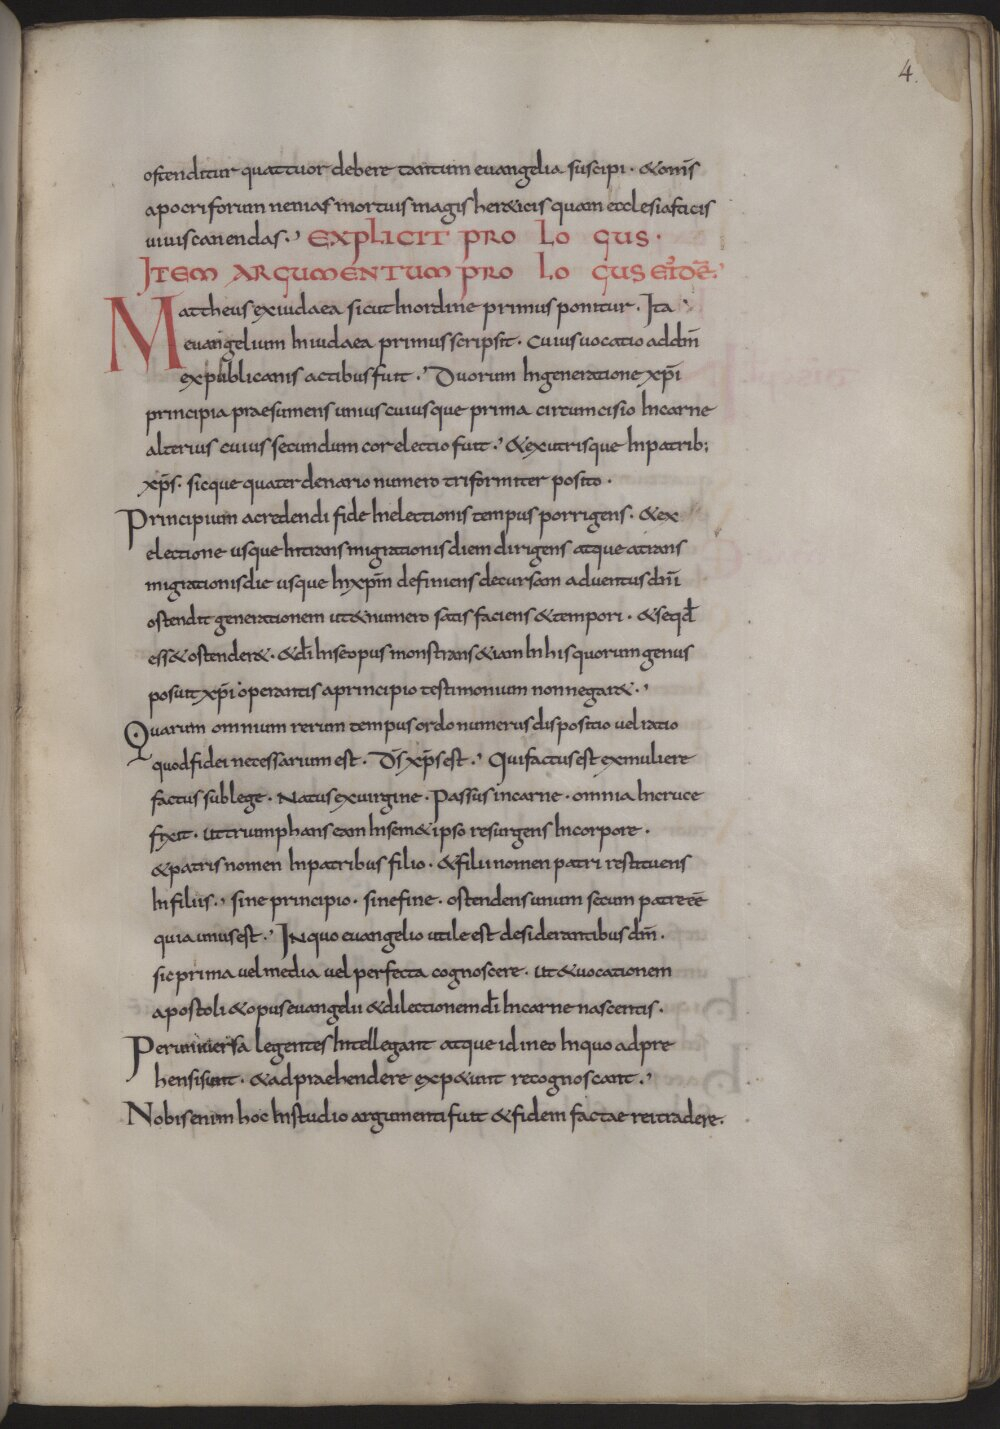 4
ostenditur quattuor debere tantum euangelia suscipi · & om̄s
apocriforum nenias mortuis magis her&icis quam ecclesiasticis
uiuis canendas · EXPLICIT PRO LO GUS ·
ITEM ARGUMENTUM PRO LO GUS EI'DĒ
Mattheus exiudaea sicut inordine primus ponitur · Ita
euangelium iniudaea primus scripsit · Cuius uocatio addn̄
expublicanis actibus fuit · Duorum ingeneratione xp̄i
principia praesumens unius cuiusque prima circumcisio incarne
alterius cuius secundum cor electio fuit · & exutrisque inpatrib;
xp̄s · sicque quater denario numero triformiter posito ·
Principium acredendi fide inelectionis tempus porrigens · & ex
electione usque intransmigrationis diem dirigens atque atrans
migrationis die usque inxpm̄ definiens decursam aduentus dn̄i
ostendit generationem ut & numero satis faciens & tempori · & seqđ
ess& ostender& · & dī inseopus monstrans & iam in his quorum genus
posuit xp̄i operantis aprincipio testimonium non negar& ·
Quarum omnium rerum tempus ordo numerus dispositio uel ratio
quod fidei necessarum est · Ds̄ xp̄s est · Qui factus est exmuliere
factus sub lege · Natus exuirgine · Passus incarne · omnia incruce
fixit · ut triumphans eam insem&ipso resurgens incorpore ·
& patris nomen inpatribus filio · & filii nomen patri restituens
infiliis · sine principio · sine fine · ostendens unum secum patre eē
quia unus est · INquo euangelio utile est desiderantibus dm̄ ·
sic prima uel media uel perfecta cognoscere · ut & uocationem
apostoli & opus euangelii & dilectionem dī incarne nascentis ·
Per uniuersa legentes intellegant atque id in eo inquo adpre
hensi sunt · & adpraehendere exp&unt recognoscant ·
Nobis enim hoc instudio argumenti fuit & fidem factae rei tradere ·